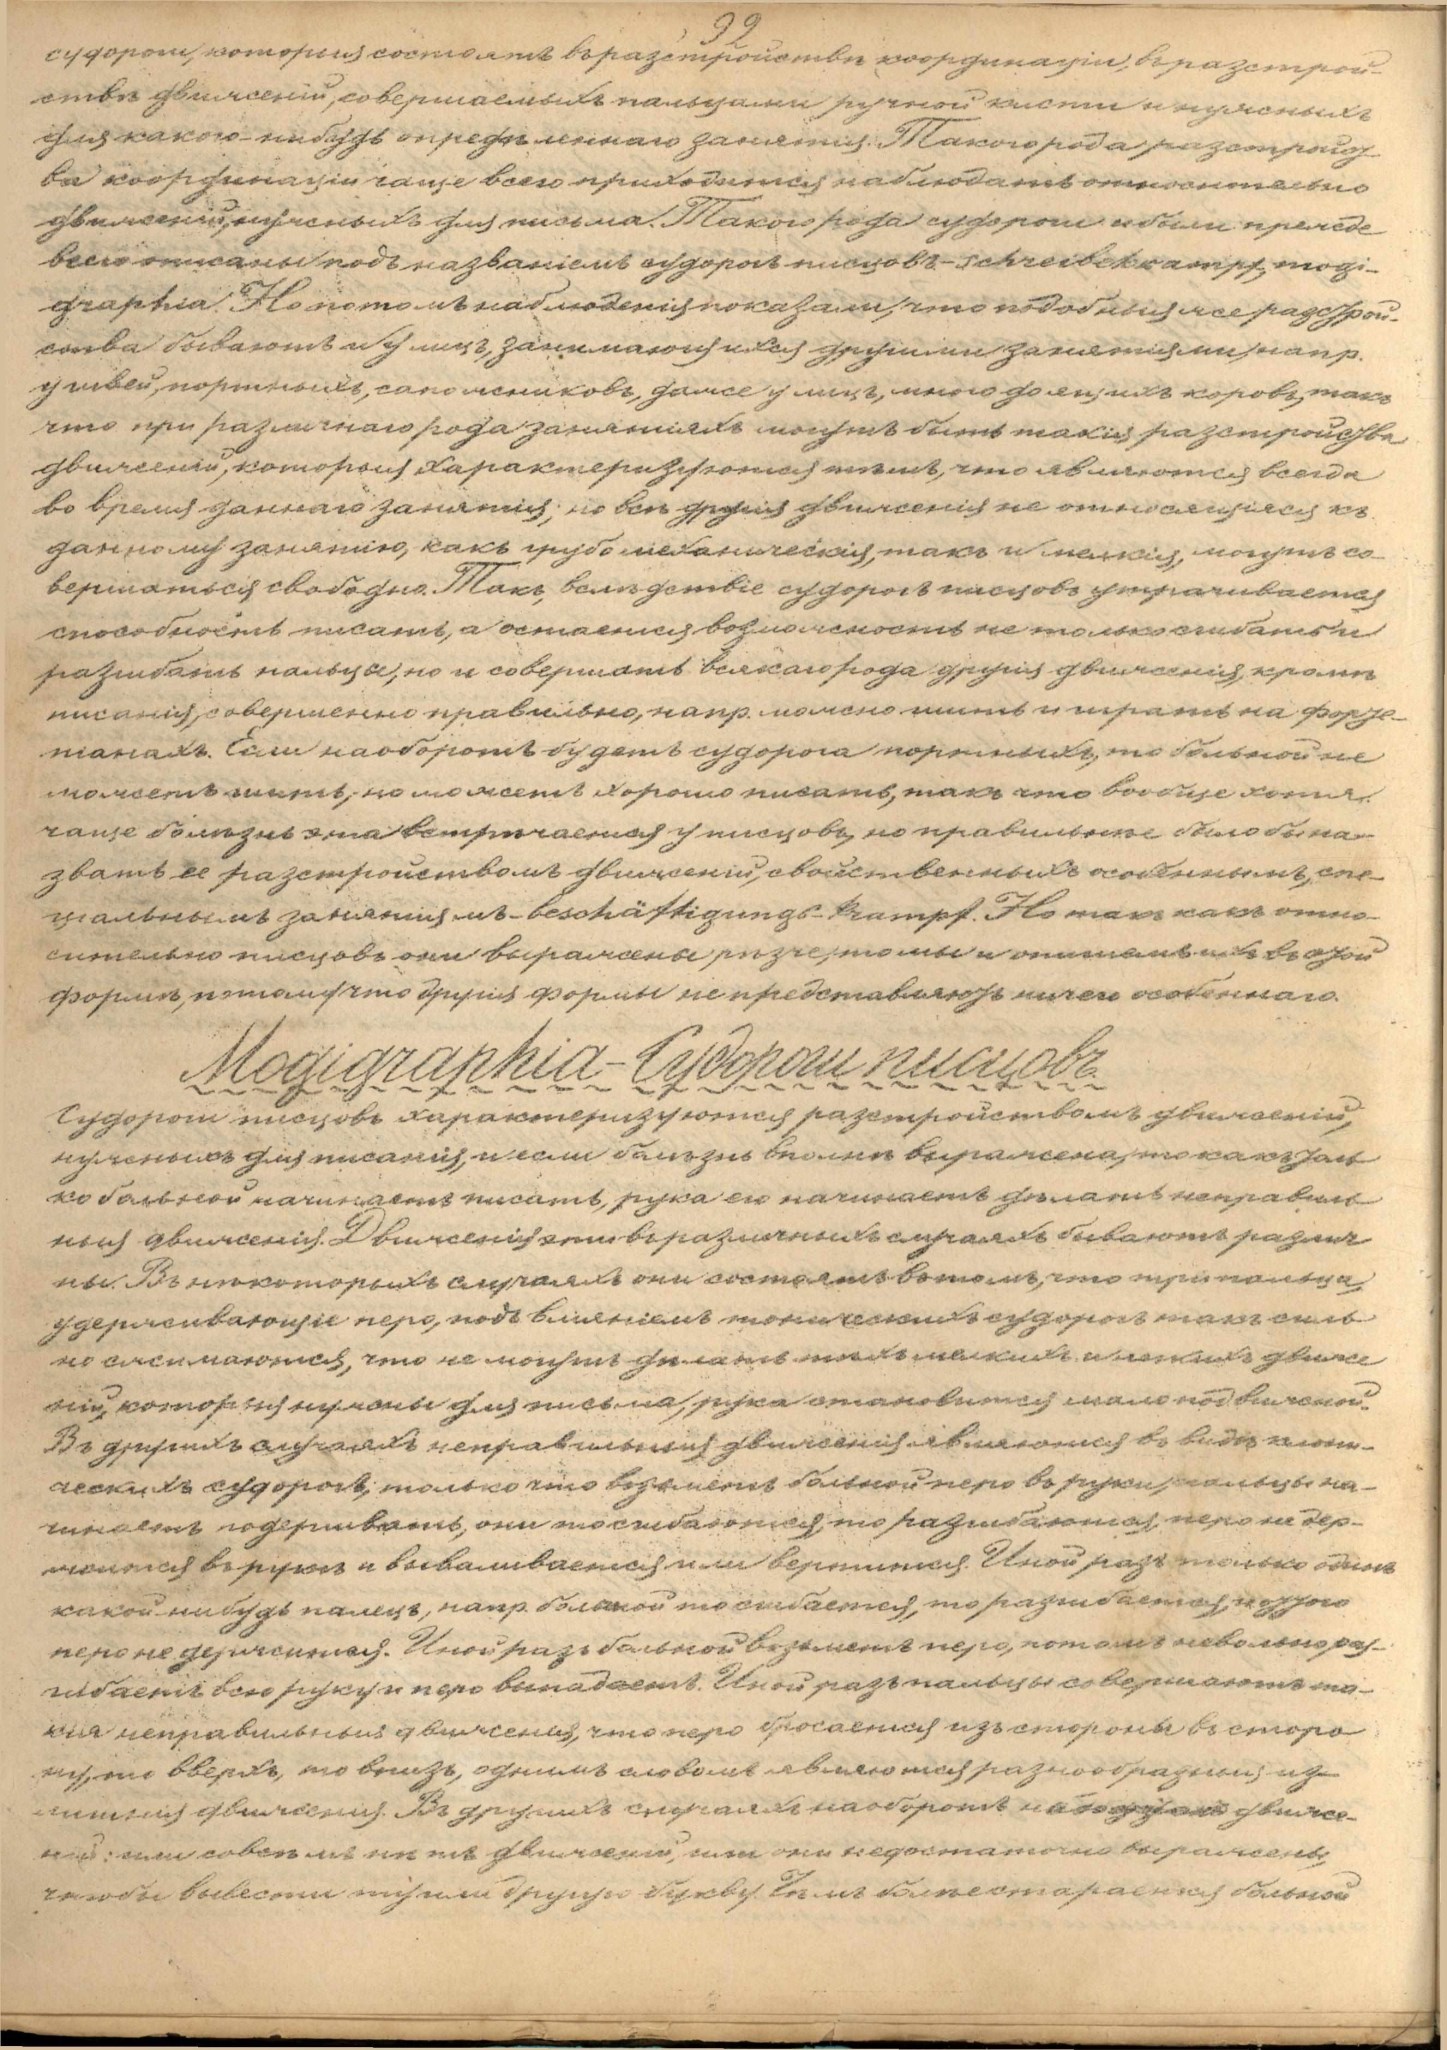 99
судороги, которыя состоятъ въ разстройствѣ координаціи, въ разстрой-
ствѣ движеній, совершаемыхъ пальцами ручной кисти и нужныхъ
для какого-нибудь опредѣленнаго занятія. Такого рода разстройст
ва координаціи чаще всего приходится наблюдать относительно
движеній, нужныхъ для письма. Такого рода судороги и были прежде
всего описаны подъ названіемъ судорогъ писцовъ - Schreibekrampf, mogi-
graphia. Но потомъ наблюденія показали, что подобныя же разстрой-
ства бываютъ и у лицъ, занимающихся другими занятіями, напр.
у швей, портныхъ, сапожниковъ, даже у лицъ, много доящихъ коровъ, такъ
что при различнаго рода занятіяхъ могутъ быть такія разстройства
движеній, которыя характеризуются тѣмъ, что являются всегда
во время даннаго занятія; но всѣ другія движенія не относящіяся къ
данному занятію, какъ грубо механическія, такъ и мелкія, могутъ со-
вершаться свободно. Такъ, вслѣдствіе судорогъ писцовъ утрачивается
способность писать, а остается возможность не только сгибать и
разгибать пальцы, но и совершать всякаго рода другія движенія, кромѣ
писанія, совершенно правильно, напр. можно шить и играть на форте-
піанахъ. Если наоборотъ будетъ судорога портныхъ, то больной не
можетъ шить, но можетъ хорошо писать, такъ что вообще хотя
чаще болѣзнь эта встрѣчается у писцовъ, но правильнѣе было бы на-
звать ее разстройствомъ движеній, свойственныхъ особеннымъ, спе-
ціальнымъ занятіямъ - beschäftigungs-krampf. Но такъ какъ отно-
сительно писцовъ они выражены рѣзче, то мы и опишемъ ихъ въ этой
формѣ, потому что другія формы не представляютъ ничего особеннаго.
Mogigraphia - Судороги писцовъ
Судороги писцовъ характеризуются разстройствомъ движеній,
нужныхъ для писанія, и если болѣзнь вполнѣ выражена, то какъ толь
ко больной начинаетъ писать, рука его начинаетъ дѣлать неправиль
ныя движенія. Движенія эти въ различныхъ случаяхъ бываютъ различ
ны. Въ нѣкоторыхъ случаяхъ они состоятъ въ томъ, что три пальца,
удерживающіе перо, подъ вліяніемъ тоническихъ судорогъ такъ силь
но сжимаются, что не могутъ дѣлать тѣхъ мелкихъ и легкихъ движе
ній, которыя нужны для письма, рука становится мало подвижной.
Въ другихъ случаяхъ неправильныя движенія являются въ видѣ клони-
ческихъ судорогъ; только что возьметъ больной перо въ руки, пальцы на-
чинаетъ подергивать, они то сгибаются, то разгибаются, перо не дер-
жится въ рукѣ и вываливается или вертится. Иной разъ только одинъ
какой нибудь палецъ, напр. большой то сгибается, то разгибается, и оттого
перо не держится. Иной разъ больной возьметъ перо, потомъ невольно раз-
гибаетъ всю руку и перо выпадаетъ. Иной разъ пальцы совершаютъ та-
кія неправильныя движенія, что перо бросается изъ стороны въ сторо
ну, то вверхъ, то внизъ, однимъ словомъ являются разнообразныя из-
лишнія движенія. Въ другихъ случаяхъ наоборотъ движе-
ній: или совсѣмъ нѣтъ движеній, или они недостаточно выражены,
чтобы вывести ту или другую букву. Чѣмъ болѣе старается больной